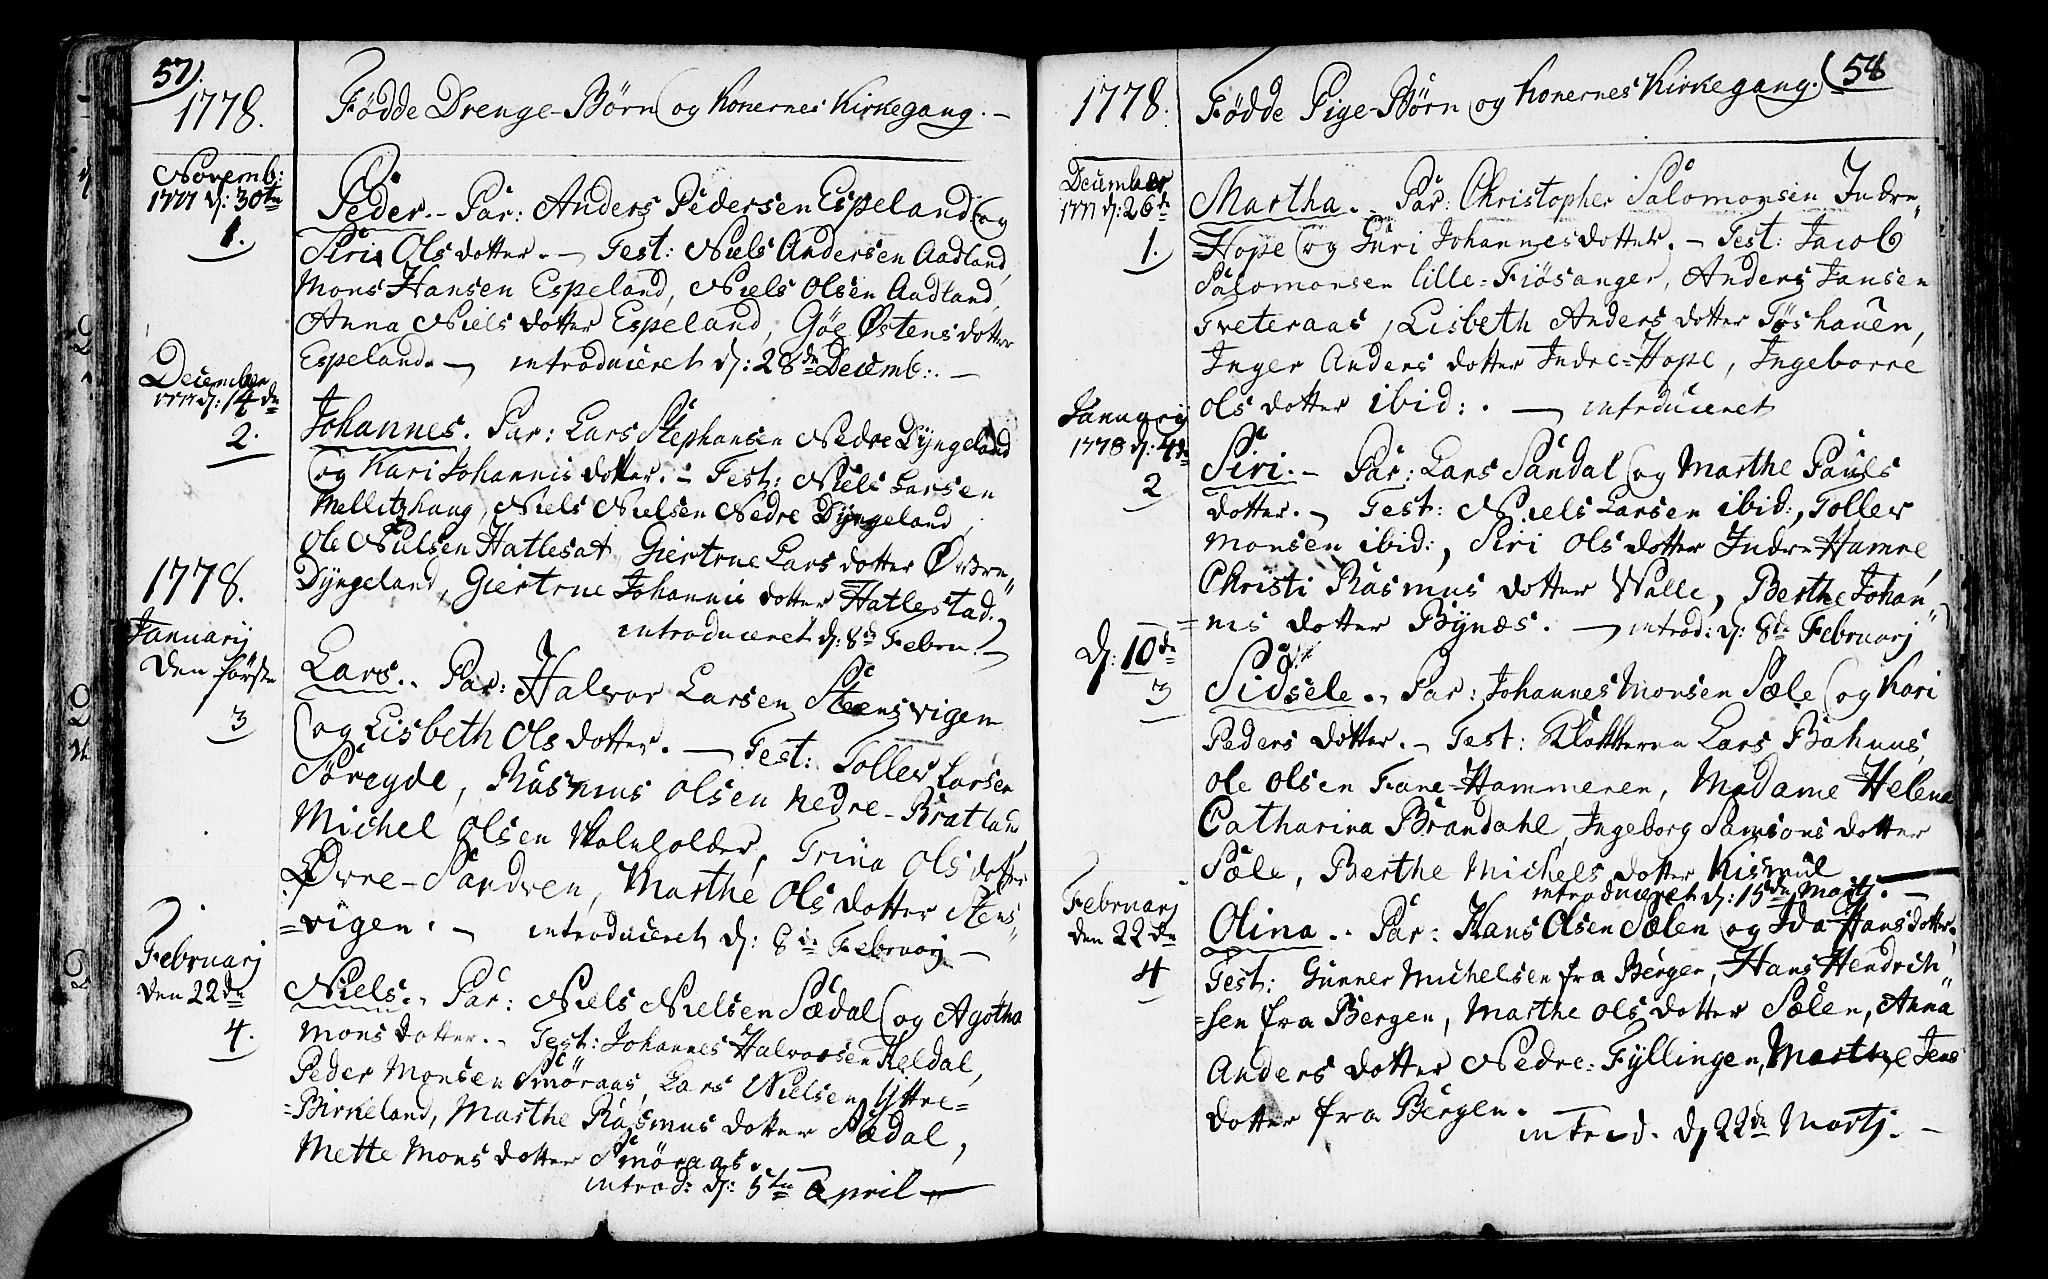 57).
1778.
Fødde Drenge-Børn og Konernes Kirkegang. -
Novemb:
1777 d: 30te
1.
Peder. - Par: Anders Pedersen Espeland og
Siri Olsdotter. - Test: Niels Andersen Aadland,
Mons Hansen Espeland, Niels Olsen Aadland,
Anna Niels dotter Espeland, Gøe Østens dotter
Espeland. - introduceret d: 28de Decemb: . -
December
1777 d: 14de
2.
Johannes. Par: Lars Stephansen Nedre Dyngeland
og Kari Johannis dotter. - Test: Niels Larsen
Mellitzhaug, Niels Nielsen Nedre Dyngeland,
Ole Nielsen Hatlesat, Giertrue Lars dotter Øvre"
Dyngeland, Giertrue Johannis dotter Hatlestad.
introduceret d: 8de Febru: -
1778.
Januarij
den første
3
Lars. Par: Halvor Larsen Steensvigen
og Lisbeth Olsdotter. - Test: Toller Larsen
Søreyde, Rasmus Olsen Nedre-Bratland,
Michel Olsen Skoleholder, Trina Ols dotter
Øvre-Sandven, Marthe Ols dotter Stens"
=vigen. - introduceret d: 8de Februarij -
Februarj
den 22de
4.
Niels. Par: Niels Nielsen Sædal og Agotha
Monsdotter. - Test: Johannes Halvorsen Keldal,
Peder Monsen Smøraas, Lars Nielsen Yttre=
=Birkeland, Marthe Rasmus dotter Sædal,
Mette Mons dotter Smøraas. -
introd: d: 5te April -
58
1778.
Fødde Pige-Børn og Konernes Kirkegang.
December
1777 d: 26de
1.
Martha. - Par: Christopher Salomonsen Indre"
Hope og Guri Johannesdotter. - Test: Jacob
Salomonsen lille-Fiøsanger, Anders Jansen
Tveteraas, Lisbeth Anders dotter Tøshauen,
Inger Anders dotter Indre=Hope, Ingeborre
Ols dotter ibid: . - introduceret
Januarij
1778 d: 4de
2
Siri. - Par: Lars Sandal og Marthe Pauls
dotter. - Test: Niels Larsen ibid:, Toller
Monsen ibid:, Siri Ols dotter Indre Hamre,
Christi Rasmus dotter Walle, Berthe Johan"
=nis dotter Bynæs. - introd: d: 8de Februarj
d: 10de
3
Sidsele. Par: Johannes Monsen Sæle og Kari
Peders dotter. - Test: Klokkeren Lars Bahuus,
Ole Olsen Fane=Hammeren, Madame Helena
Catharina Brandahl, Ingeborg Samsons dotter
Sæle, Berthe Michels dotter Kismul
introduceret d: 15de Martj. -
Februarj
den 22de
4
Olina. Par: Hans Olsen Sælen og Ida Hansdotter.
Test: Gunner Michelsen fra Bergen, Hans Hendrich"
=sen fra Bergen, Marthe Ols dotter Sælen, Anna
Anders dotter Nedre=Fyllingen, Marthe Jens
dotter fra Bergen.
introd. d. 22de Martj. -